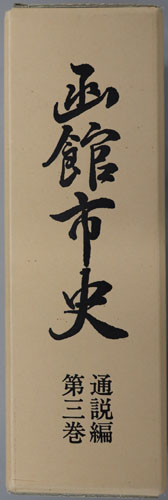 函館市史
通説編
第三巻